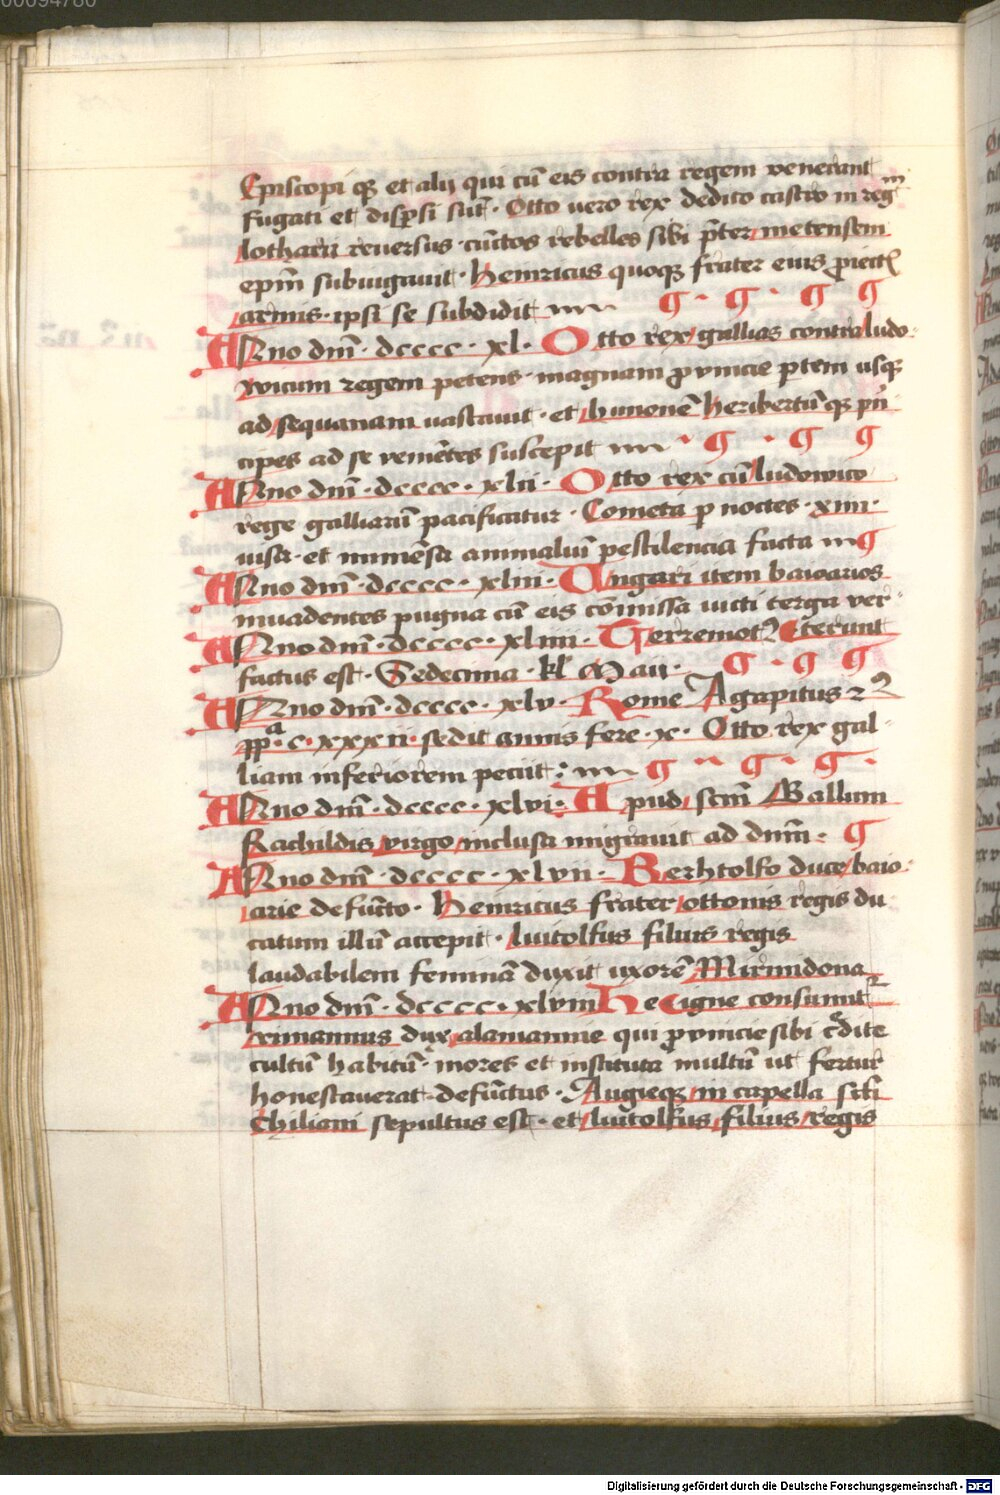 00094780
Episcopi qꝫ et alij qui cū eis contra regem venerant
fugati et dispersi sūt · Otto vero rex dedito castro in regᵐ
lotharij reversus · cūctos rebelles sibi p̄ter metensem
ep̄m subiugauit · heinricus quoqꝫ frater eius
armis · ipsi se subdidit
Anno dm̄ · dcccc · xl · Otto rex gallias contra ludo
wicum regem petens · magnam ꝓvincie ꝑtem usqꝫ
ad sequanam vastauit · et hunonē heribertūqꝫ pri
cipes ad se veniētes suscepit
Anno dm̄ · dcccc · xlii · Otto rex cū ludowico
rege galliarū pacificatur · Cometa ꝑ noctes · xiiii ·
uisa · et inmēsa animaliū pestilencia facta
Anno dm̄ · dcccc · xliii · Ungari item baioarios
inuadentes pugna cū eis cōmissa uicti terga ver
Anno dm̄ · dcccc · xliiii · Terremotꝰ terunt
factus est · Sedecima · kl̄ Maii ·
Anno dm̄ · dcccc · xlv · Rome Agapitus 2ꝰ
pp̄ᵃ · c · xxxii · sedit annis fere · x · Otto rex gal
liam inferiorem peciit :
Anno dm̄ · dcccc · xlvi : Apud sctm̄ Gallum
Rachildis virgo inclusa migrauit ad dnm̄ ·
Anno dm̄ · dcccc · xlvii · Berhtolfo duce baio
arie defūcto · Heinricus frater ottonis regis du
catum illū accepit · luitolfus filius regis
laudabilem feminā duxit uxorē
Anno dm̄ · dcccc · xlviii He igne consumit
rimannus dux alamannie qui ꝓvincie sibi c̄dite
cultū habitū · mores et instituta multū ut fertur
honestauerat · defūctus · Augieqꝫ in capella scti
Chiliani sepultus est · et luitolfus filius regis
Digitalisierung gefördert durch die Deutsche Forschungsgemeinschaft - DFG